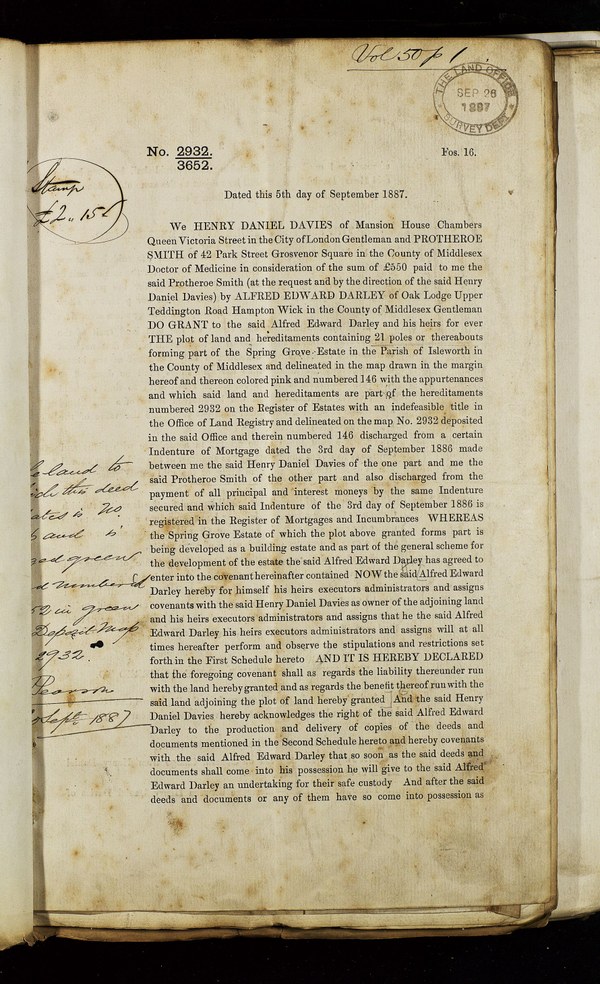 Vol 50 p 1
THE LAND OFFICE
SEP 26
1887
SURVEY DEPT
No. 2932.
3652.
Fos. 16.
Stamp
£2..15
Dated this 5th day of September 1887.
We HENRY DANIEL DAVIES of Mansion House Chambers
Queen Victoria Street in the City of London Gentleman and PROTHEROE
SMITH of 42 Park Street Grosvenor Square in the County of Middlesex
Doctor of Medicine in consideration of the sum of £550 paid to me the
said Protheroe Smith (at the request and by the direction of the said Henry
Daniel Davies) by ALFRED EDWARD DARLEY of Oak Lodge Upper
Teddington Road Hampton Wick in the County of Middlesex Gentleman
DO GRANT to the said Alfred Edward Darley and his heirs for ever
THE plot of land and hereditaments containing 21 poles or thereabouts
forming part of the Spring Grove Estate in the Parish of Isleworth in
the County of Middlesex and delineated in the map drawn in the margin
hereof and thereon colored pink and numbered 146 with the appurtenances
and which said land and hereditaments are part of the hereditaments
numbered 2932 on the Register of Estates with an indefeasible title in
the Office of Land Registry and delineated on the map No. 2932 deposited
in the said Office and therein numbered 146 discharged from a certain
Indenture of Mortgage dated the 3rd day of September 1886 made
between me the said Henry Daniel Davies of the one part and me the
said Protheroe Smith of the other part and also discharged from the
payment of all principal and interest moneys by the same Indenture
secured and which said Indenture of the 3rd day of September 1886 is
registered in the Register of Mortgages and Incumbrances WHEREAS
the Spring Grove Estate of which the plot above granted forms part is
being developed as a building estate and as part of the general scheme for
the development of the estate the said Alfred Edward Darley has agreed to
enter into the covenant hereinafter contained NOW the said Alfred Edward
Darley hereby for himself his heirs executors administrators and assigns
covenants with the said Henry Daniel Davies as owner of the adjoining land
and his heirs executors administrators and assigns that he the said Alfred
Edward Darley his heirs executors administrators and assigns will at all
times hereafter perform and observe the stipulations and restrictions set
forth in the First Schedule hereto AND IT IS HEREBY DECLARED
that the foregoing covenant shall as regards the liability thereunder run
with the land hereby granted and as regards the benefit thereof run with the
said land adjoining the plot of land hereby granted And the said Henry
Daniel Davies hereby acknowledges the right of the said Alfred Edward
Darley to the production and delivery of copies of the deeds and
documents mentioned in the Second Schedule hereto and hereby covenants
with the said Alfred Edward Darley that so soon as the said deeds and
documents shall come into his possession he will give to the said Alfred
Edward Darley an undertaking for their safe custody And after the said
deeds and documents or any of them have so come into possession as
land to
this deed
is No.
and is
green
numbered
in green
Deposit Map
2932.
Pearson
Sept 1887